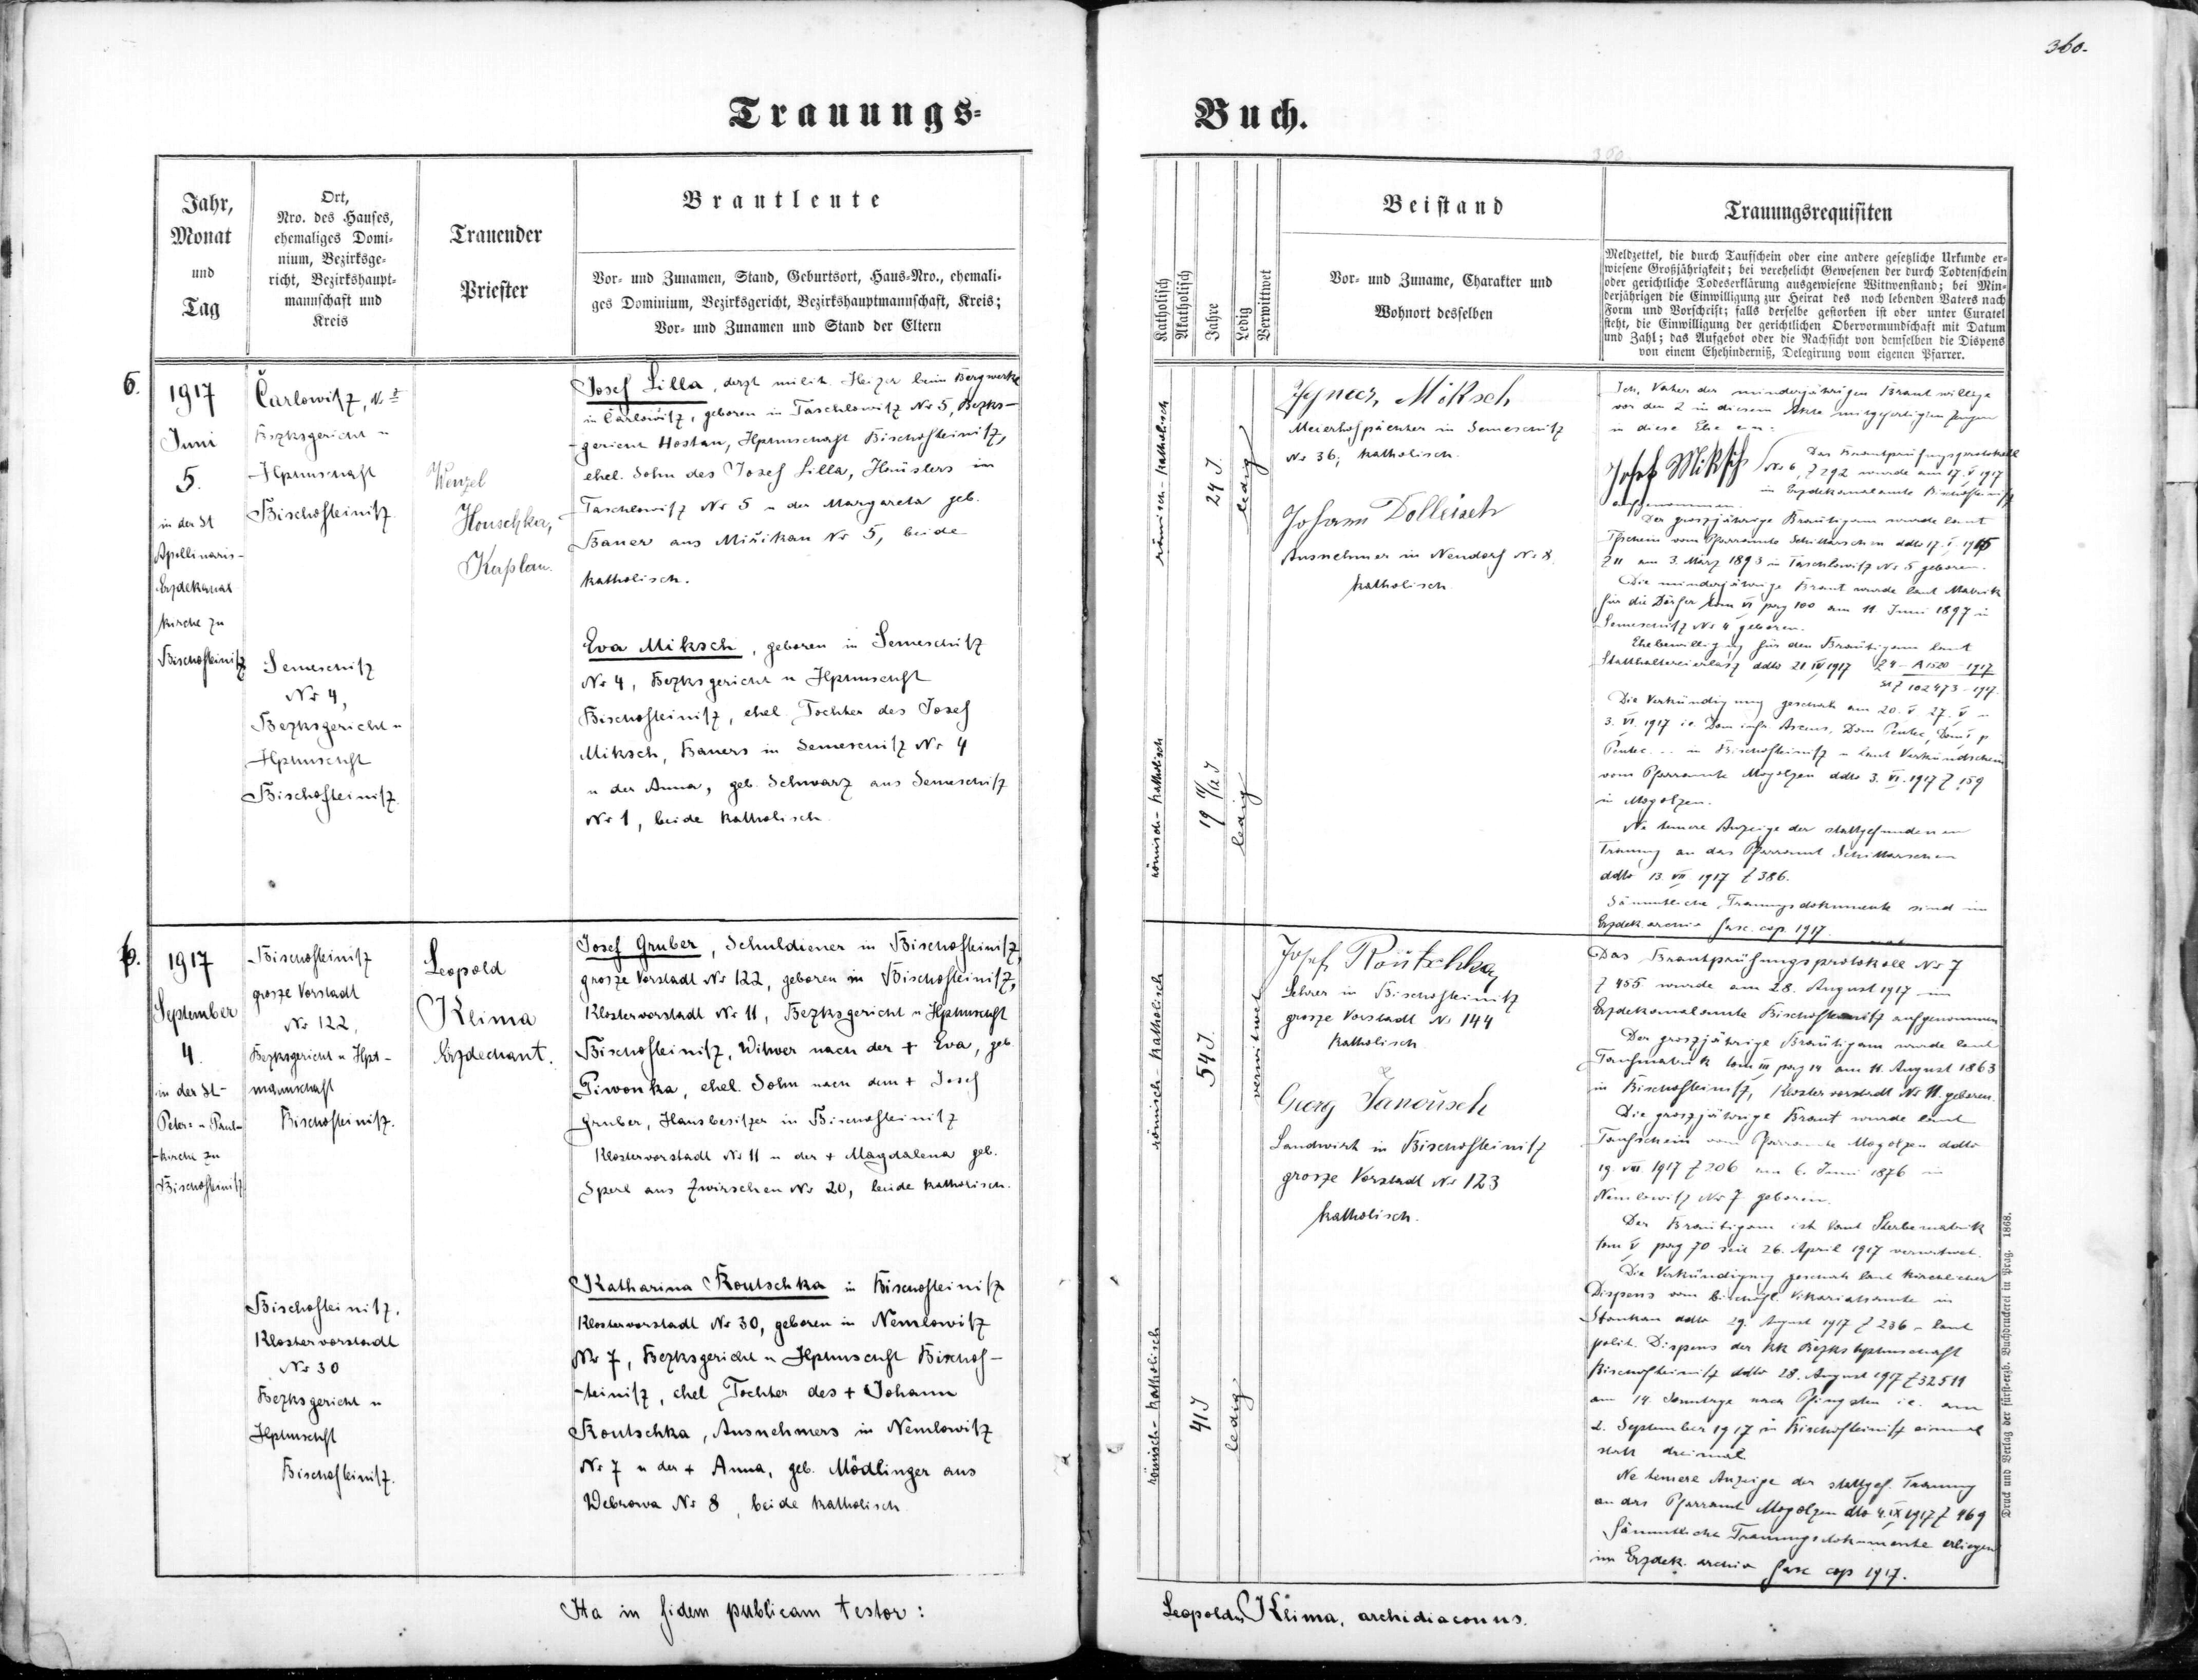 360.
Trauungs-
Buch.
Jahr,
Monat
und
Tag
Ort,
Nro. des Hauses,
ehemaliges Domi-
nium, Bezirksge-
richt, Bezirkshaupt-
mannschaft und
Kreis
Trauender
Priester
Brautleute
Vor- und Zunamen, Stand, Geburtsort, Haus-Nro., ehemali-
ges Dominium, Bezirksgericht, Bezirkshauptmannschaft, Kreis;
Vor- und Zunamen und Stand der Eltern
Katholisch
Akatholisch
Jahre
Ledig
Verwittwet
Beistand
Vor- und Zuname, Charakter und
Wohnort desselben
Trauungsrequisiten
Meldzettel, die durch Taufschein oder eine andere gesetzliche Urkunde er-
wiesene Großjährigkeit; bei verehelicht Gewesenen der durch Todtenschein
oder gerichtliche Todeserklärung ausgewiesene Wittwenstand; bei Min-
derjährigen die Einwilligung zur Heirat des noch lebenden Vaters nach
Form und Vorschrift; falls derselbe gestorben ist oder unter Curatel
steht, die Einwilligung der gerichtlichen Obervormundschaft mit Datum
und Zahl; das Aufgebot oder die Nachsicht von demselben die Dispens
von einem Ehehinderniß, Delegirung vom eigenen Pfarrer.
6.
1917
Juni
5.
in der St
Apollinaris-
Erzdekanal
kirche zu
Bischofteinitz
Čarlowitz, Nr
Bezksgericht u
Hptmschaft
Bischofteinitz
Semeschitz
Nr 4,
Bezksgericht u
Hptmschft
Bischofteinitz.
Wenzel
Houschka,
Kaplan.
Josef Lilla, derzt milit. Heizer beim Bergwerke
in Čarlowitz, geboren in Taschlowitz Nr 5, Bezks-
gericht Hostau, Hptmschaft Bischofteinitz,
ehel. Sohn des Josef Lilla, Häuslers in
Taschlowitz Nr 5 u der Margareta geb.
Bauer aus Miřikau Nr 5, beide
katholisch.
Eva Miksch, geboren in Semeschitz
Nr 4, Bezksgericht u Hptmschft
Bischofteinitz, ehel. Tochter des Josef
Miksch, Bauers in Semeschitz Nr 4
u der Anna, geb. Schwarz aus Semeschitz
Nr 1, beide katholisch.
römisch-katholisch
24 J.
ledig
römisch-katholisch
19 11/12 J
ledig
Miksch
Meierhofpächter in Semeschitz
Nr 36, katholisch.
Johann Dolleisch
Ausnehmer in Neudorf Nr 8.
katholisch
Ich, Vater der minderjährigen Braut willige
vor den 2 in diesem Akte mitgefertigten Zeugen
in diese Ehe ein:
Josef Miksch
Das Brautprüfungsprotokoll
Nr 6, Z 292 wurde am 17. V 1917
im Erzdekanalamte Bischofteinitz
aufgenommen.
Der groszjährige Bräutigam wurde laut
Tfschein vom Pfarramte Schittarschen ddto 17. I.
Z 11 am 3. März 1893 in Taschlowitz Nr 5 geboren.
Die minderjährige Braut wurde laut Matrik
für die Dörfer tom VI pag 100 am 11. Juni 1897 in
Semeschitz Nr 4 geboren.
Ehebewilligung für den Bräutigam laut
Statthaltereierlasz ddto 21 IV 1917 24-A 1520-1917
St Z 102473-1917.
Die Verkündigung geschah am 20. V 27. V u
3. VI. 1917 i.e. Dom infr. Ascens, Dom Pentec, Dom I p
Pentec... in Bischofteinitz u laut Verkündschein
vom Pfarramte Mogolzen ddto 3. VI. 1917 Z 159
in Mogolzen.
Ne temere Anzeige der stattgefundenen
Trauung an das Pfarramt Schittarschen
ddto 13. VII 1917 Z 386.
Sämmtliche Trauungsdokumente sind im
Erzdek. archiv fasc. cop. 1917.
6.
1917
September
4.
in der St-
Peter- u. Paul-
kirche zu
Bischofteinitz
Bischofteinitz
grosze Vorstadt
Nr 122,
Bezksgericht u Hpt-
mannschaft
Bischofteinitz.
Bischofteinitz.
Klostervorstadt
Nr 30
Bezksgericht u
Hptmschft
Bischofteinitz.
Leopold
Klima
Erzdechant.
Josef Gruber, Schuldiener in Bischofteinitz,
grosze Vorstadt Nr 122, geboren in Bischofteinitz,
Klostervorstadt Nr 11, Bezksgericht u Hptmschft
Bischofteinitz, Witwer nach der + Eva, geb.
Piwonka, ehel. Sohn nach dem + Josef
Gruber, Hausbesitzer in Bischofteinitz
Klostervorstadt Nr 11 u der + Magdalena geb.
Sperl aus Zwirschen Nr 20, beide katholisch.
Katharina Koutschka in Bischofteinitz
Klostervorstadt Nr 30, geboren in Nemlowitz
Nr 7, Bezksgericht u Hptmschft Bischof-
teinitz, ehel Tochter des + Johann
Koutschka, Ausnehmers in Nemlowitz
Nr 7 u der + Anna, geb. Mödlinger aus
Webrowa Nr 8, beide katholisch
römisch-katholisch
54 J.
verwitwet
römisch-katholisch
41 J
ledig
Josef Koutschka
Lehrer in Bischofteinitz
grosze Vorstadt Nr 144
katholisch.
Georg Janousch
Landwirt in Bischofteinitz
grosze Vorstadt Nr 123
katholisch.
Das Brautprüfungsprotokoll Nr 7
Z 455 wurde am 28. August 1917 im
Erzdekanalamte Bischofteinitz aufgenommen
Der groszjährige Bräutigam wurde laut
Taufmatrik tom III pag 14 am 11. August 1863
in Bischofteinitz, Klostervorstadt Nr 11. geboren.
Die groszjährige Braut wurde laut
Taufschein vom Pfarramte Mogolzen ddto
19. VIII 1917 Z 206 am 6. Juni 1876 in
Nemlowitz Nr 7 geboren.
Der Bräutigam ist laut Sterbematrik
tom V pag 70 seit 26. April 1917 verwitwet.
Die Verkündigung geschah laut kirchlicher
Dispens vom bischöfl. Vikariatsamte in
Stankau ddto 29. August 1917 Z 236 u laut
polit. Dispens der kk Bezkshptmschaft
Bischofteinitz ddto 28. August 1917 Z 32511
am 14. Sonntage nach Pfingsten i.e. am
2. September 1917 in Bischofteinitz einmal
statt dreimal.
Ne temere Anzeige der stattgef. Trauung
an das Pfarramt Mogolzen dto 4. IX 1917 Z 469
Sämmtliche Trauungsdokumente erliegen
im Erzdek. archiv fasc cop 1917.
Druck und Verlag der fürst-erzb. Buchdruckerei in Prag. 1868.
Ita in fidem publicam testor:
Leopoldus Klima, archidiaconus.